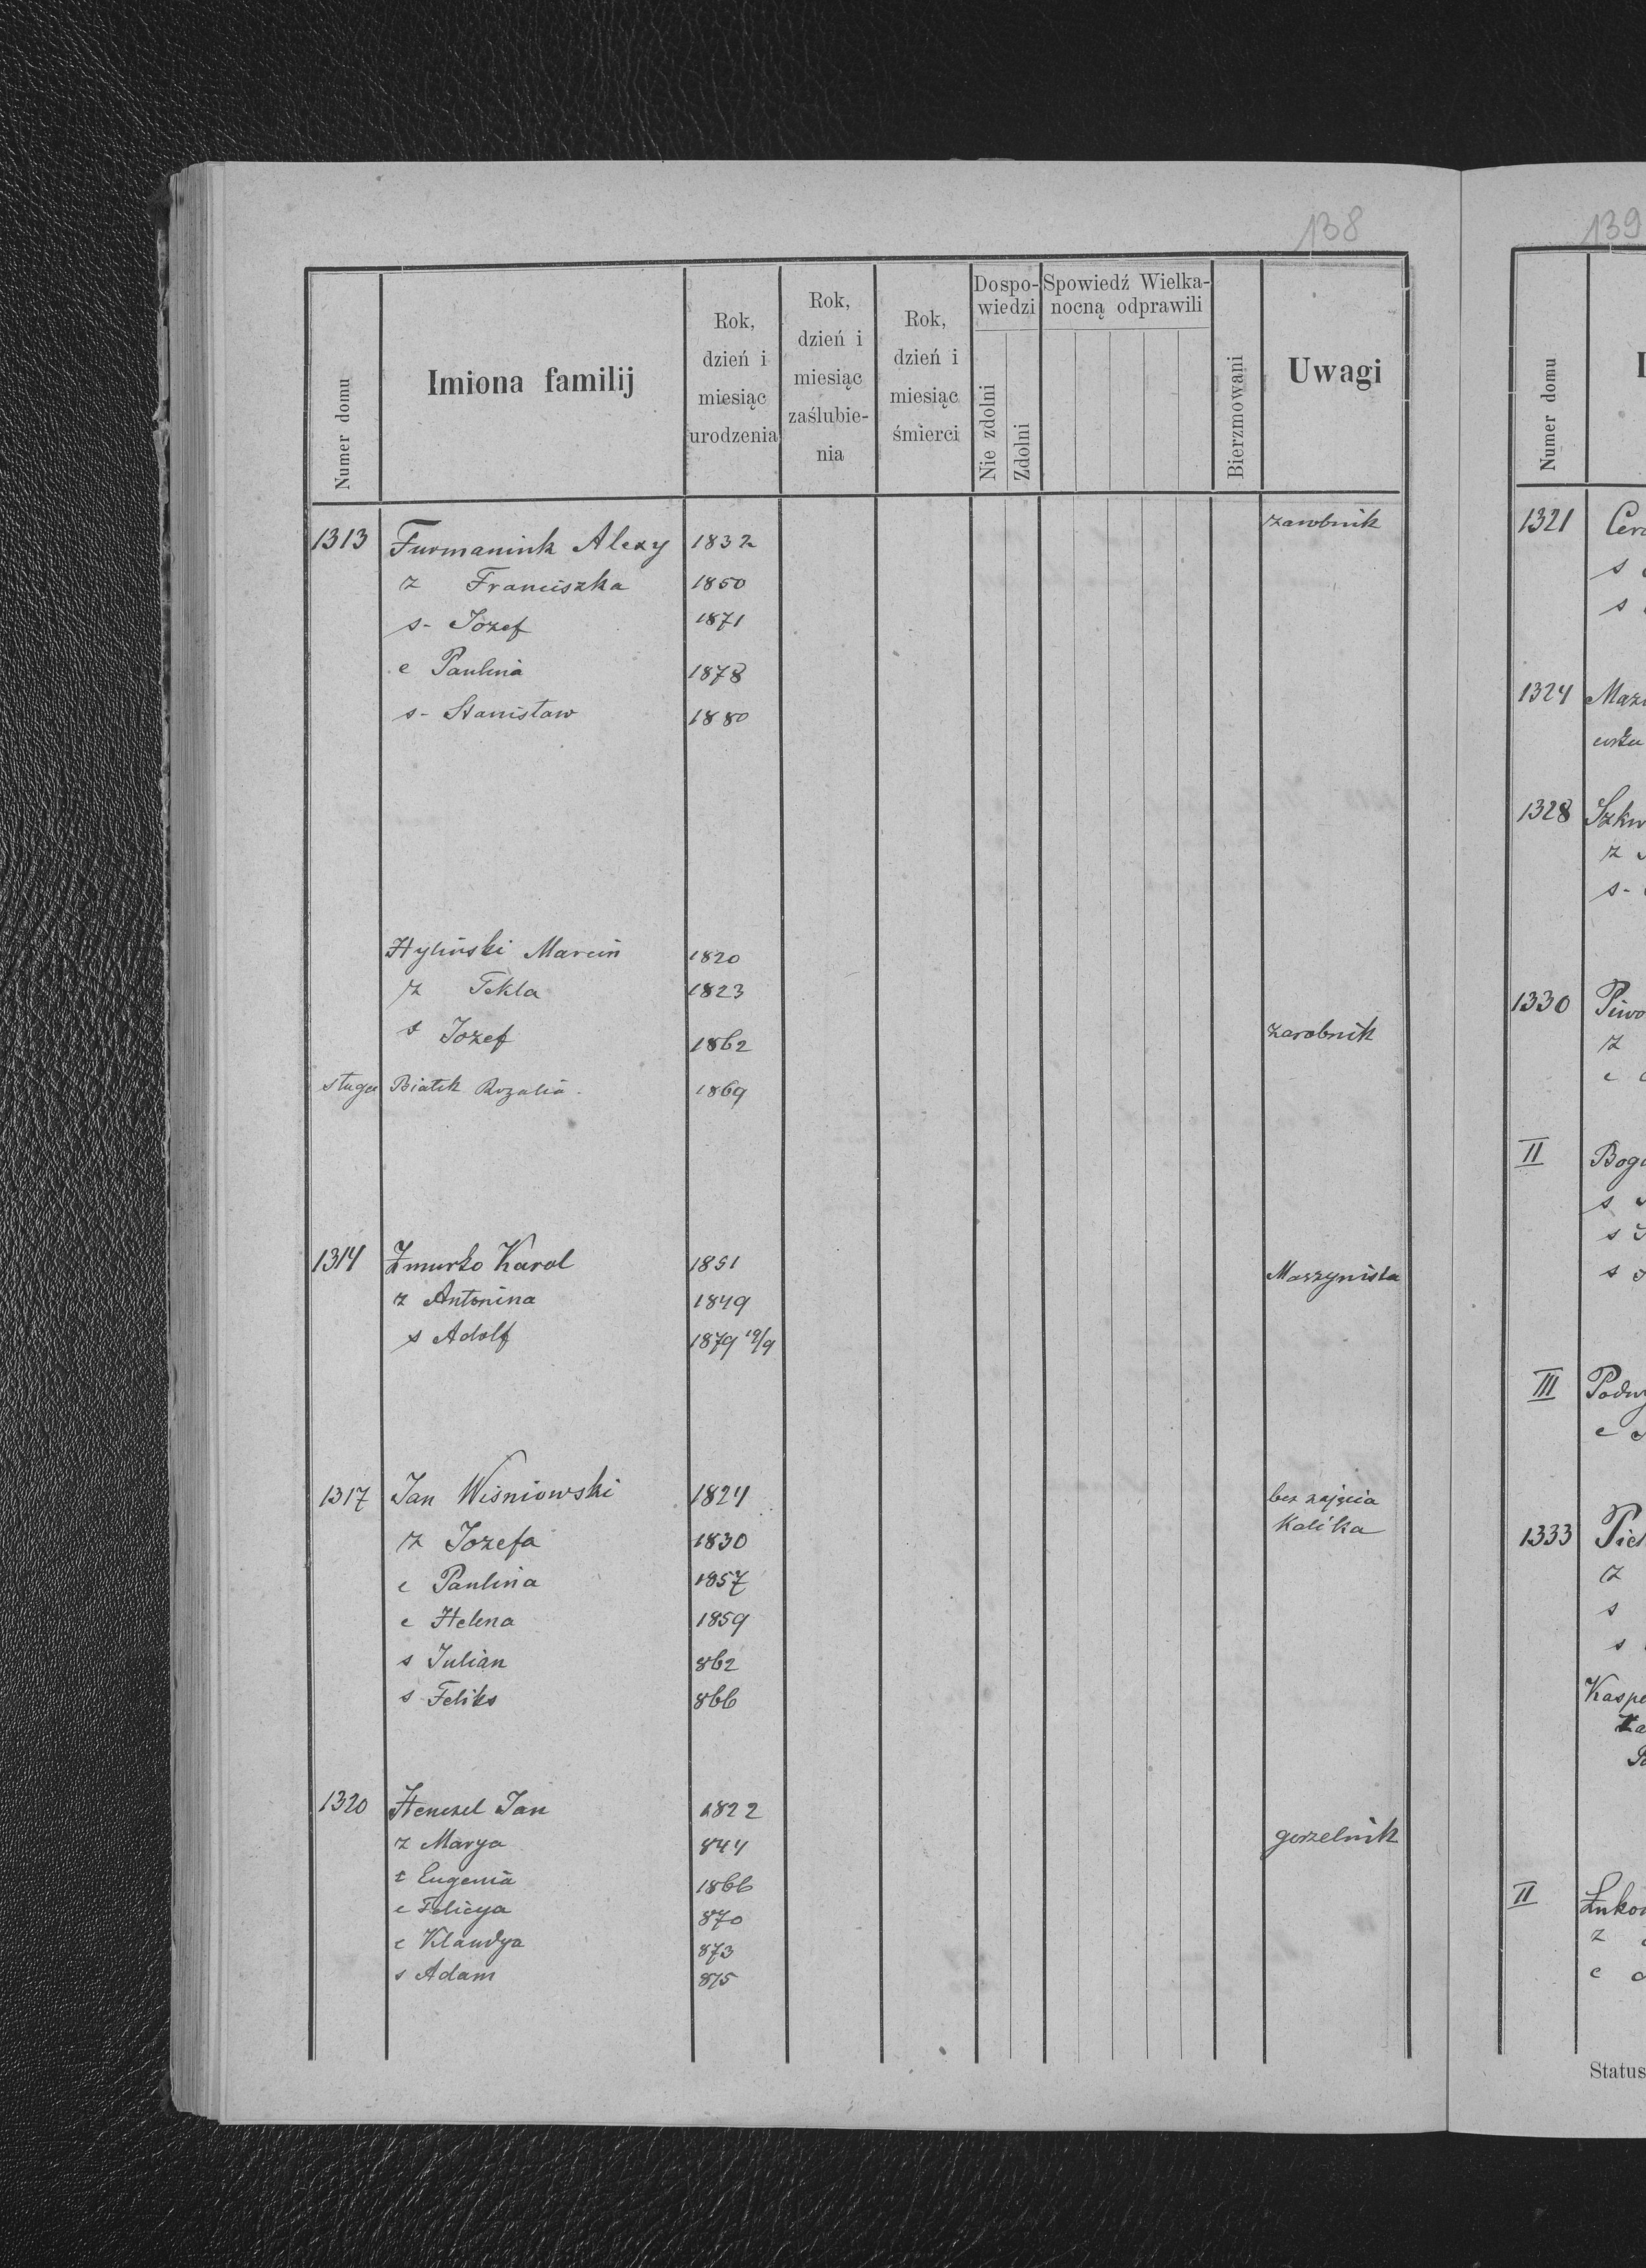 138
139
Numer domu
Imiona familij
Rok,
dzień i
miesiąc
urodzenia
Rok,
dzień i
miesiąc
zaślubie-
nia
Rok,
dzień i
miesiąc
śmierci
Dospo-
wiedzi
Nie zdolni
Zdolni
Spowiedź Wielka-
nocną odprawili
Bierzmowani
Uwagi
1313 Furmanink Alexy 1832 zarobnik
z Franciszka 1850
s- Józef 1871
c Paulina 1878
s- Stanisław 1880
Hyliński Marcin 1820
z Tekla 1823
s Jozef 1862 zarobnik
sługa Białek Rozalia 1869
1314 Żmurko Karol 1851 Maszynista
z Antonina 1849
s Adolf 1879 19/9
1317 Jan Wiśniowski 1824 bez zajęcia
kalika
z Jozefa 1830
c Paulina 1857
c Helena 1859
s Julian 862
s Feliks 866
1320 Henczel Jan 1822
z Marya 844 gorzelnik
c Eugenia 1866
c Felicya 870
c Klaudya 873
s Adam 875
Numer domu
1321
s
s
1324
1328
z
s-
1330
z
c
II
s
s
s
III
c
1333
z
s
s
II
z
c
Status